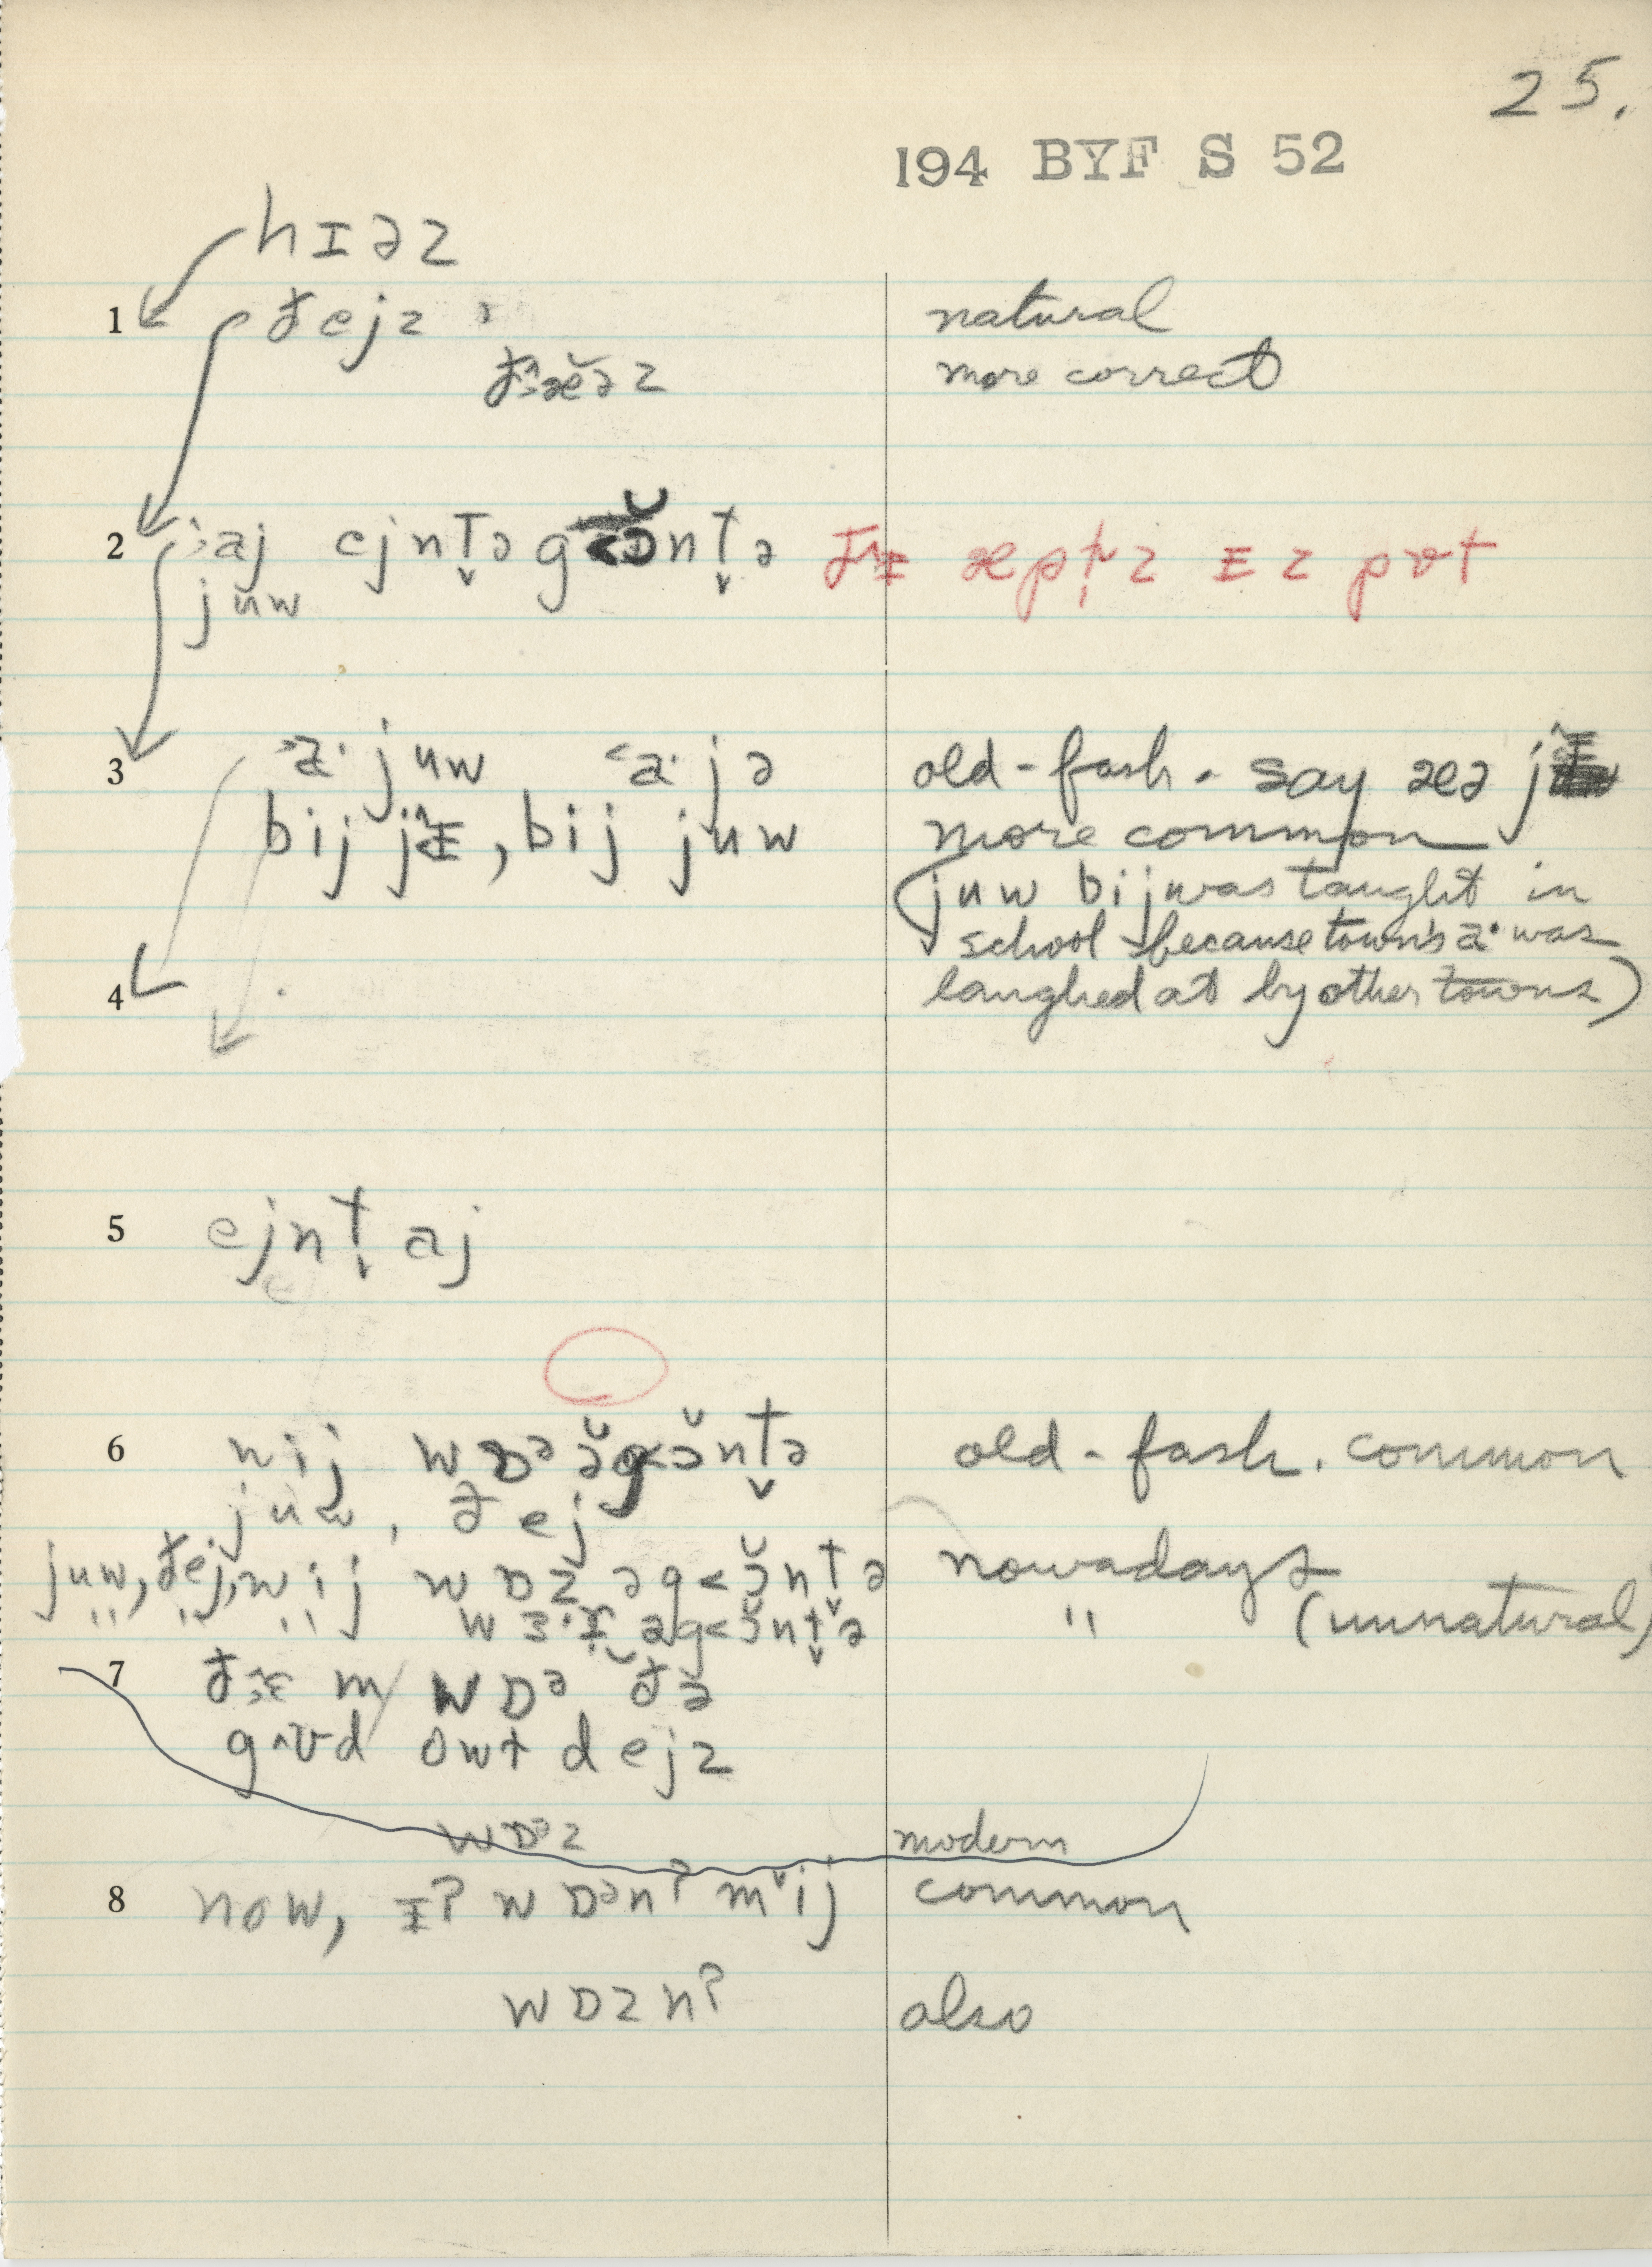 25.
194 BYF S 52
hɪəz
1 đejz natural
more correct
2 aj ejnt̬ə
juw
ɪz
3 juw jə old-fash. say æə
bij , bij juw more common
(juw bij was taught in
school because town's a· was
4 laughed at by other towns)
5 ejnt̬ aj
6 wij wɒə old-fash. common
juw, đej
juw, đej, wij wɒz əg<ɔ̆nt̬ə nowadays
" " " əg<ɔ̆nt̬ə " (unnatural)
7 m wɒə đə
g^ʊd owt dejz
wɒəz modern
8 now, ɪʔ wɒənʔ mˇij common
wɒznʔ also